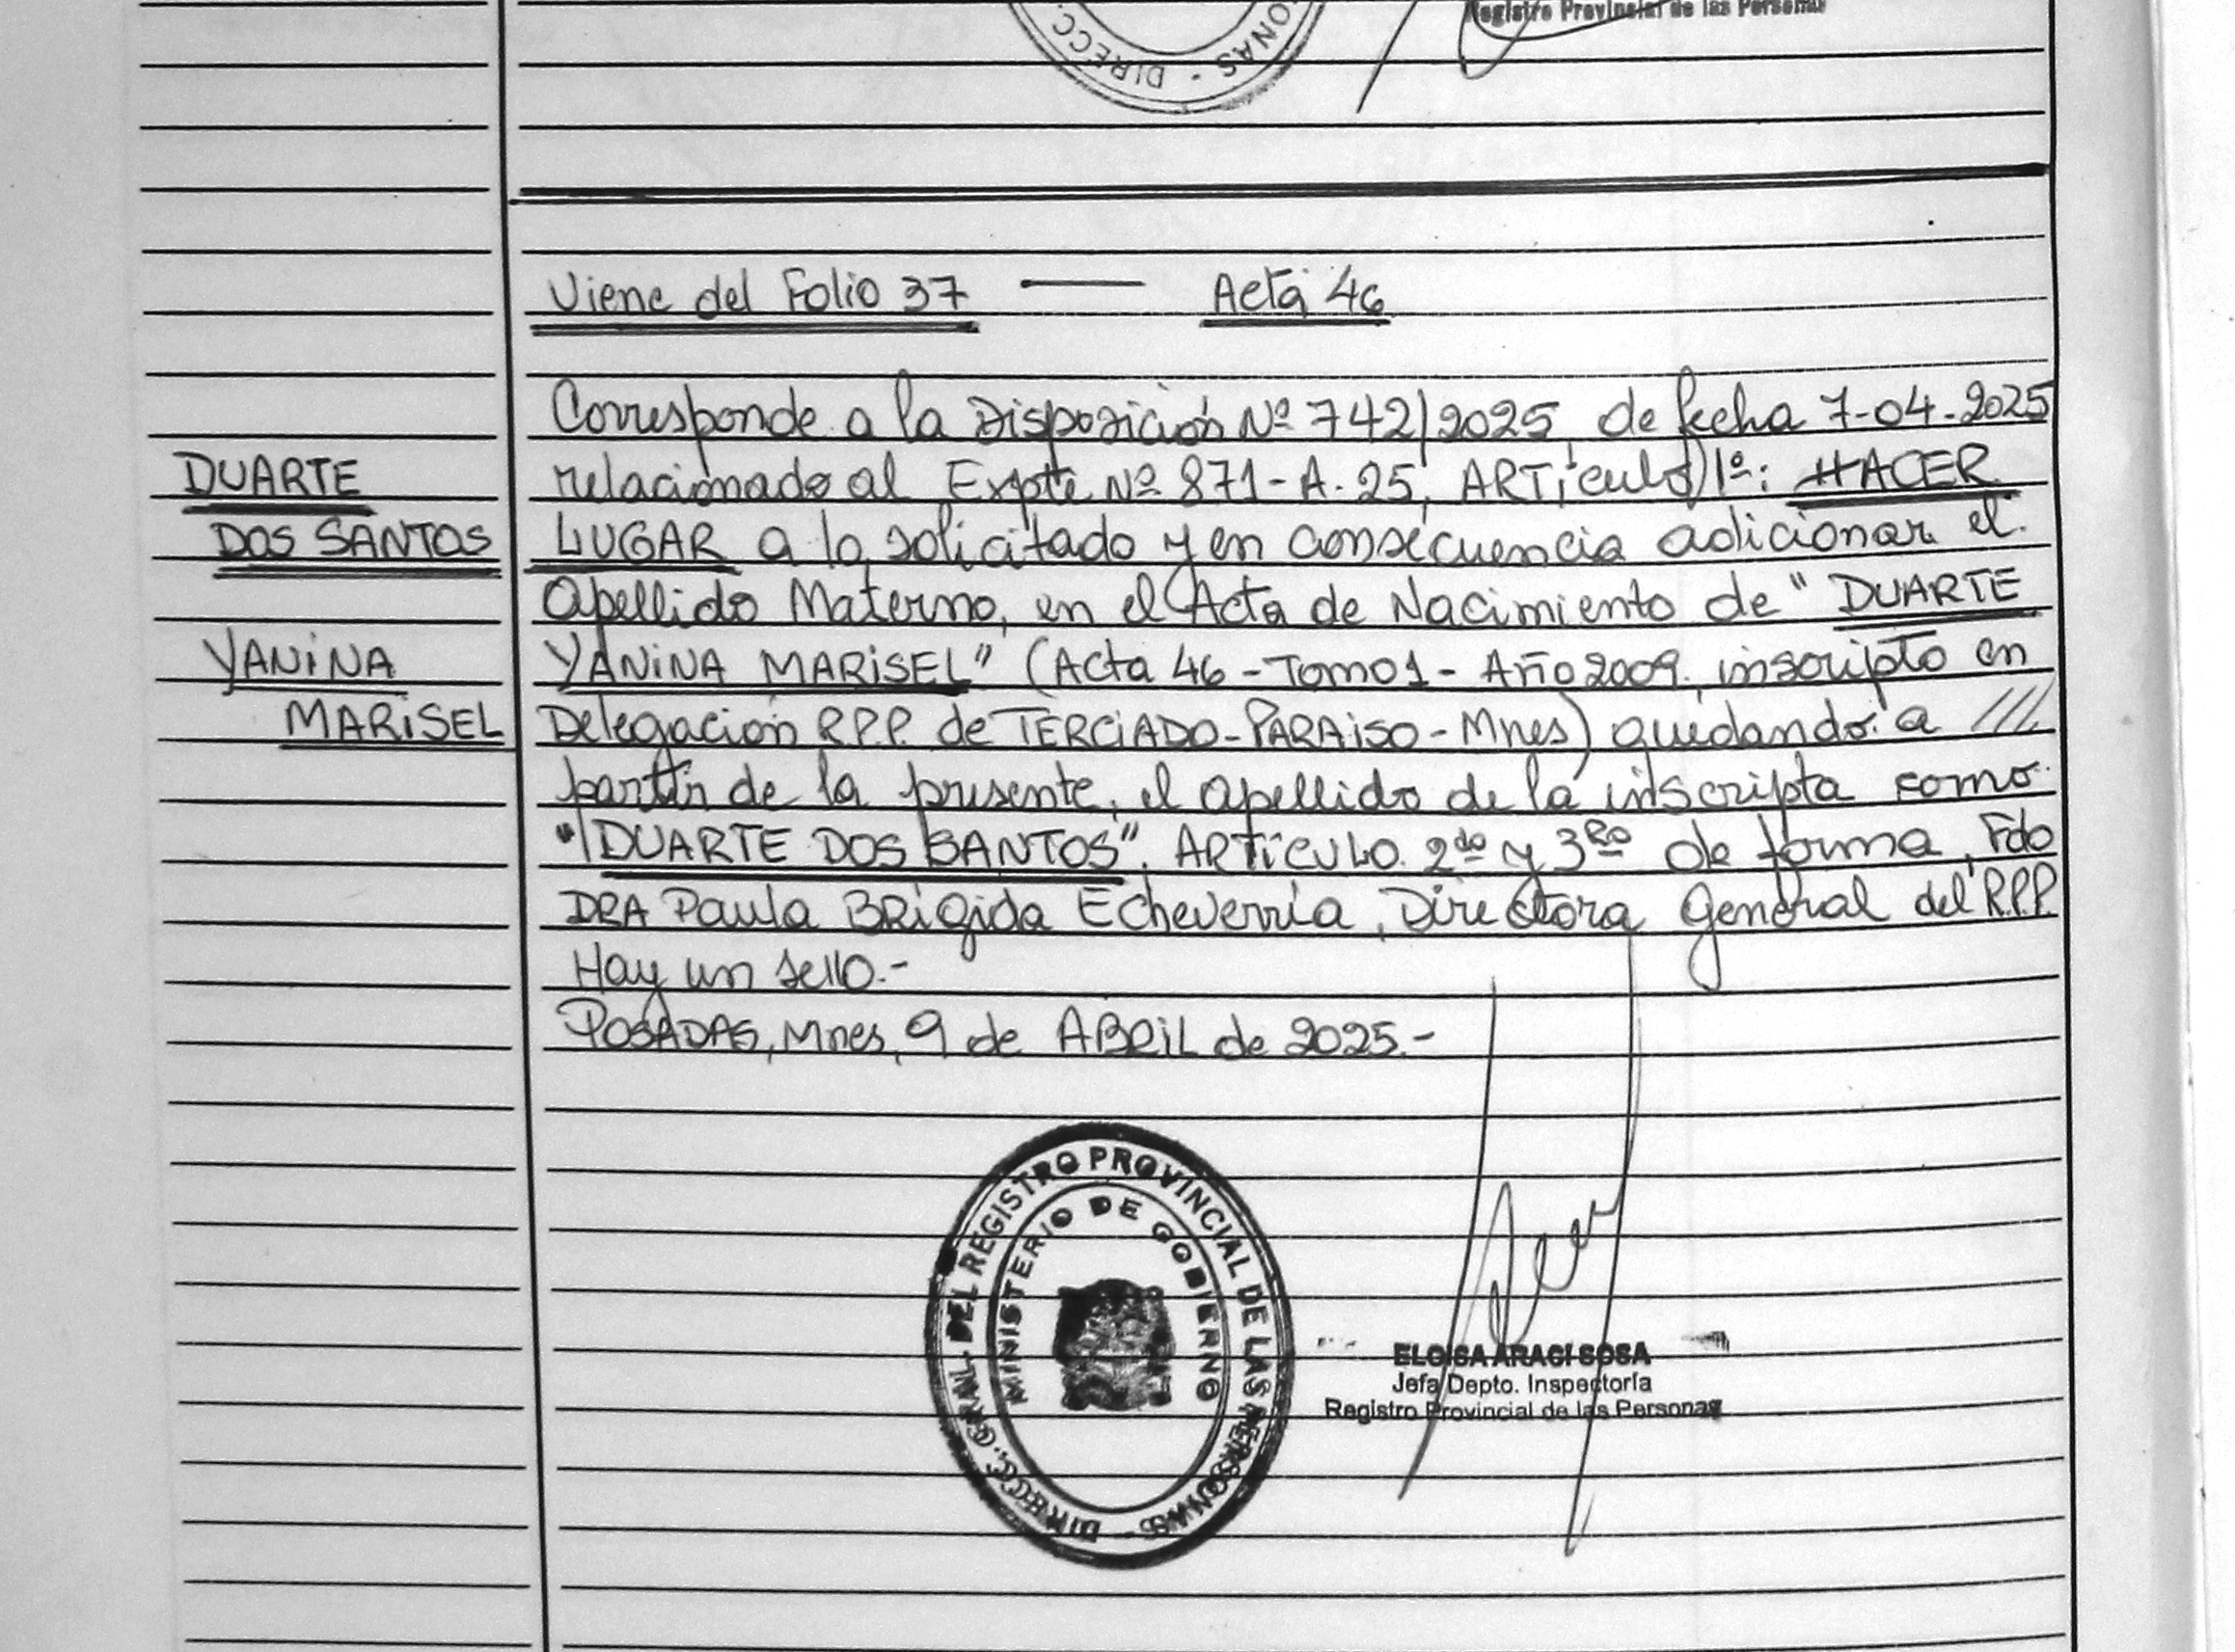 Registro Provincial de las Personas
ONAS - DIRECC.
Viene del Folio 37 — Acta 46
Corresponde a la Disposición Nº 742/2025, de fecha 7-04-2025
DUARTE
relacionado al Expte Nº 871-A-25, ARTículo 1º: HACER
DOS SANTOS
LUGAR a lo solicitado y en consecuencia adicionar el
Apellido Materno, en el Acta de Nacimiento de "DUARTE
YANINA
YANINA MARISEL" (Acta 46 - Tomo 1 - Año 2009, inscripto en
MARISEL
Delegación R.P.P. de TERCIADO-PARAISO-Mnes) quedando a ///
partir de la presente, el apellido de la inscripta como
"DUARTE DOS SANTOS". ARTICULO 2do y 3Ro de forma, Fdo
DRA Paula BRigida Echeverría, Directora General del R.P.P.
Hay un sello.-
POSADAS, Mnes, 9 de ABRIL de 2025.-
DIRECC. GRAL. DEL REGISTRO PROVINCIAL DE LAS PERSONAS -
MINISTERIO DE GOBIERNO
ELOISA ARACI SOSA
Jefa Depto. Inspectoría
Registro Provincial de las Personas